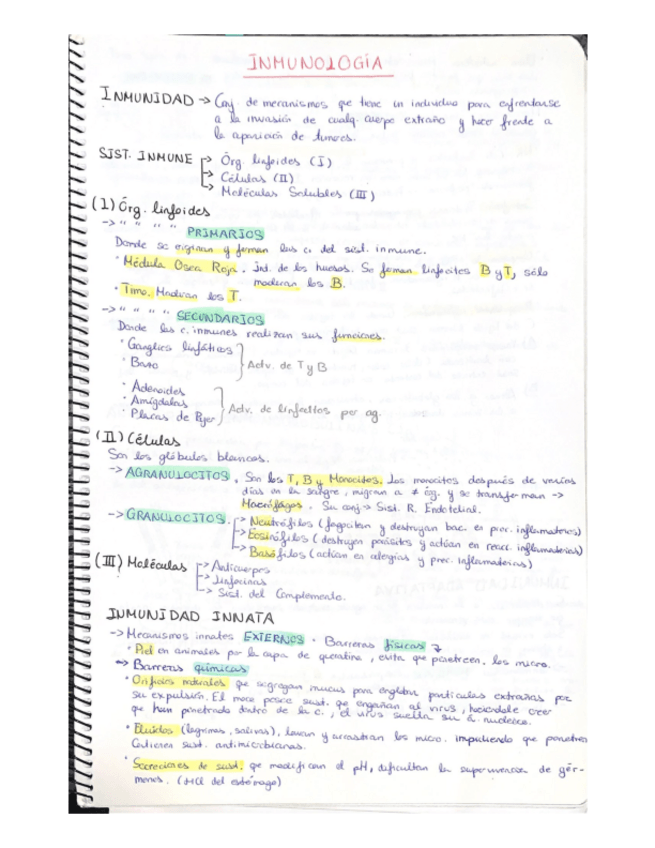 INMUNOLOGÍA
INMUNIDAD → Conj. de mecanismos que tiene un individuo para enfrentarse
a la invasión de cualq. cuerpo extraño y hacer frente a
la aparición de tumores.
SIST. INMUNE → Órg. linfoides (I)
→ Células (II)
→ Moléculas Solubles (III)
(I) Órg. linfoides
→ " " " " PRIMARIOS
Donde se originan y forman las c. del sist. inmune.
· Médula Ósea Roja. Int. de los huesos. Se forman linfocitos B y T, sólo
maduran los B.
· Timo. Maduran los T.
→ " " " " SECUNDARIOS
Donde las c. inmunes realizan sus funciones.
· Ganglios linfáticos
· Bazo
Actv. de T y B
· Adenoides
· Amígdalas
· Placas de Peyer
Actv. de linfocitos por ag.
(II) Células
Son los glóbulos blancos.
→ AGRANULOCITOS. Son los T, B y Monocitos. Los monocitos después de varios
días en la sangre, migran a ≠ órg. y se transforman →
Macrófagos. Su conj → Sist. R. Endotelial.
→ GRANULOCITOS. → Neutrófilos (fagocitan y destruyan bac. en proc. inflamatorios)
→ Eosinófilos (destruyen parásitos y actúan en reacc. inflamatorias)
→ Basófilos (actúan en alergias y proc. inflamatorios)
(III) Moléculas → Anticuerpos
→ Linfocinas
→ Sist. del Complemento.
INMUNIDAD INNATA
→ Mecanismos innatos EXTERNOS · Barreras físicas
· Piel en animales por la capa de queratina, evita que penetren los micro.
⇒ Barreras químicas
· Orificios naturales que segregan mucus para englobar partículas extrañas por
su expulsión. El moco posee sust. que engañan al virus, haciéndole creer
que han penetrado dentro de la c., el virus suelta su á. nucleico.
· Fluidos (lágrimas, salivas), lavan y arrastran los micro. impidiendo que penetren
Contienen sust. antimicrobianas.
· Secreciones de sust. que modifican el pH, dificultan la supervivencia de gér-
menes. (HCl del estómago)